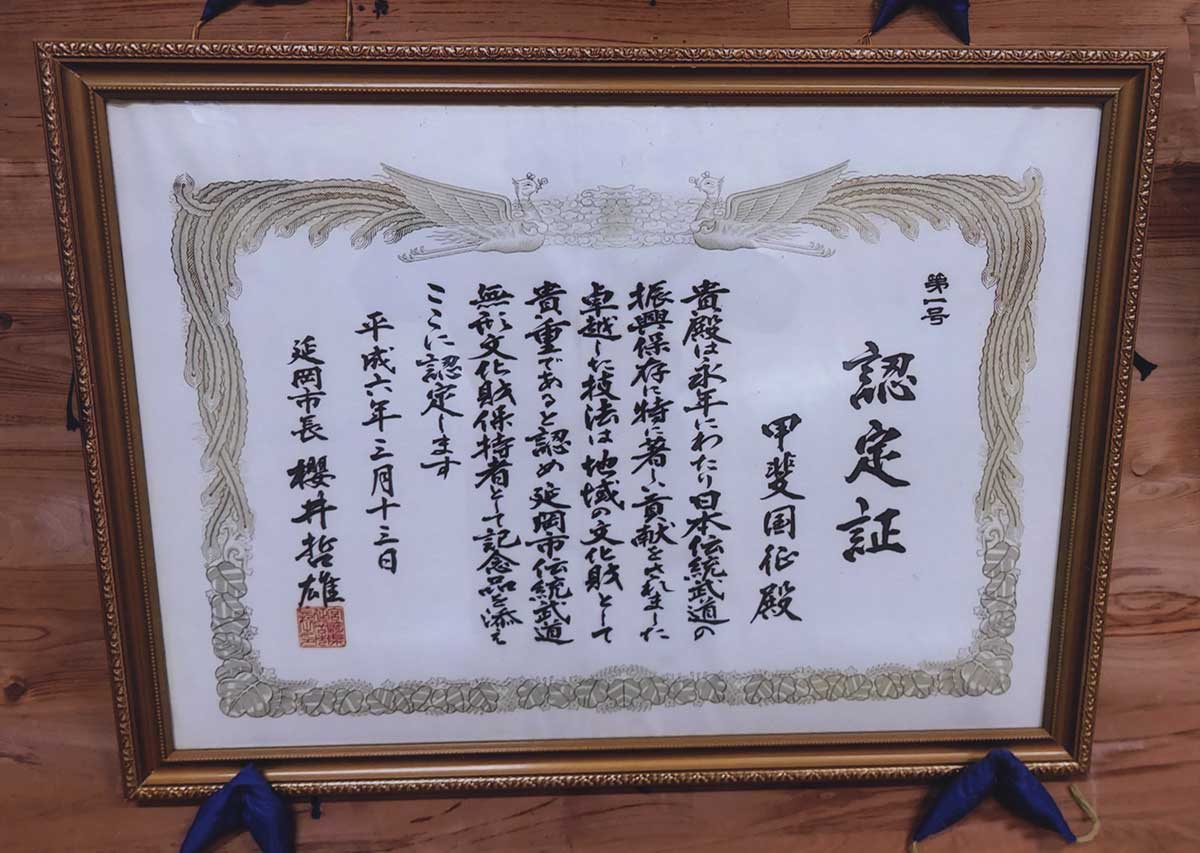 第一号
認定証
甲斐国征殿
貴殿は永年にわたり日本伝統武道の
振興保存に特に著しい貢献をされました
卓越した技法は地域の文化財として
貴重であると認め延岡市伝統武道
無形文化財保持者として記念品を添え
ここに認定します
平成六年三月十三日
延岡市長 櫻井哲雄